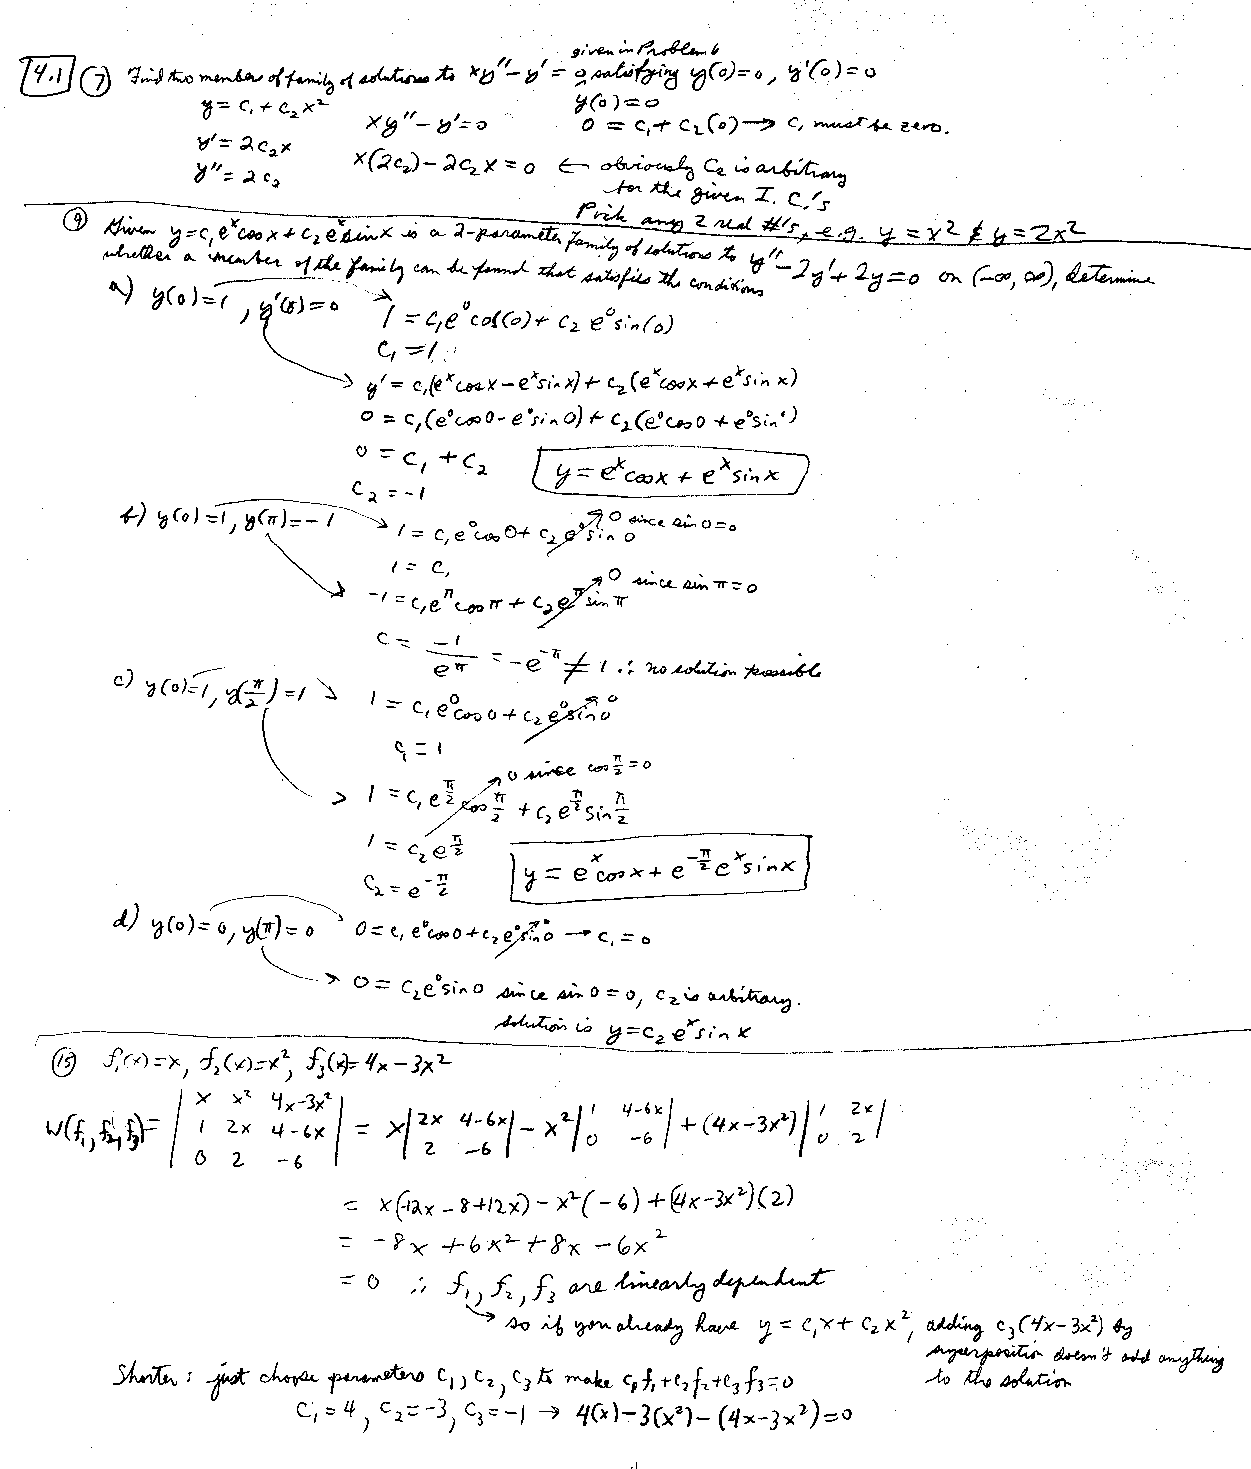 given in Problem 6
4.1 ⑦ Find two members of family of solutions to xy'' - y' = 0 satisfying y(0)=0, y'(0)=0
y = c₁ + c₂x²
y(0)=0
xy'' - y' = 0
0 = c₁ + c₂(0) → c₁ must be zero.
y' = 2c₂x
x(2c₂) - 2c₂x = 0 ← obviously c₂ is arbitrary
y'' = 2c₂
for the given I.C.'s
Pick any 2 real #'s, e.g. y = x² & y = 2x²
⑨ Given y = c₁eˣcosx + c₂eˣsinx is a 2-parameter family of solutions to y'' - 2y' + 2y = 0 on (-∞, ∞), determine
whether a member of the family can be found that satisfies the conditions
a) y(0)=1, y'(0)=0
1 = c₁e⁰cos(0) + c₂e⁰sin(0)
c₁ = 1
y' = c₁(eˣcosx - eˣsinx) + c₂(eˣcosx + eˣsinx)
0 = c₁(e⁰cos0 - e⁰sin0) + c₂(e⁰cos0 + e⁰sin0)
0 = c₁ + c₂
y = eˣcosx + eˣsinx
c₂ = -1
b) y(0)=1, y(π)=-1
1 = c₁e⁰cos0 + c₂e⁰sin0 → 0 since sin0=0
1 = c₁
-1 = c₁e^π cosπ + c₂e^π sinπ → 0 since sinπ=0
c = -1/e^π = -e^-π ≠ 1 ∴ no solution possible
c) y(0)=1, y(π/2)=1
1 = c₁e⁰cos0 + c₂e⁰sin0 → 0
c₁ = 1
0 since cos π/2 = 0
1 = c₁e^(π/2) cos π/2 + c₂e^(π/2) sin π/2
1 = c₂e^(π/2)
y = eˣcosx + e^(-π/2) eˣsinx
c₂ = e^(-π/2)
d) y(0)=0, y(π)=0
0 = c₁e⁰cos0 + c₂e⁰sin0 → c₁ = 0
0 = c₂e⁰sin0 since sin0=0, c₂ is arbitrary.
solution is y = c₂eˣsinx
⑮ f₁(x)=x, f₂(x)=x², f₃(x)=4x-3x²
W(f₁,f₂,f₃) = | x x² 4x-3x² | 1 2x 4-6x | 0 2 -6 | = x | 2x 4-6x | 2 -6 | - x² | 1 4-6x | 0 -6 | + (4x-3x²) | 1 2x | 0 2 |
= x(-12x - 8 + 12x) - x²(-6) + (4x-3x²)(2)
= -8x + 6x² + 8x - 6x²
= 0 ∴ f₁, f₂, f₃ are linearly dependent
so if you already have y = c₁x + c₂x², adding c₃(4x-3x²) by
superposition doesn't add anything
to the solution
Shorter: just choose parameters c₁, c₂, c₃ to make c₁f₁+c₂f₂+c₃f₃=0
c₁=4, c₂=-3, c₃=-1 → 4(x)-3(x²)-(4x-3x²)=0